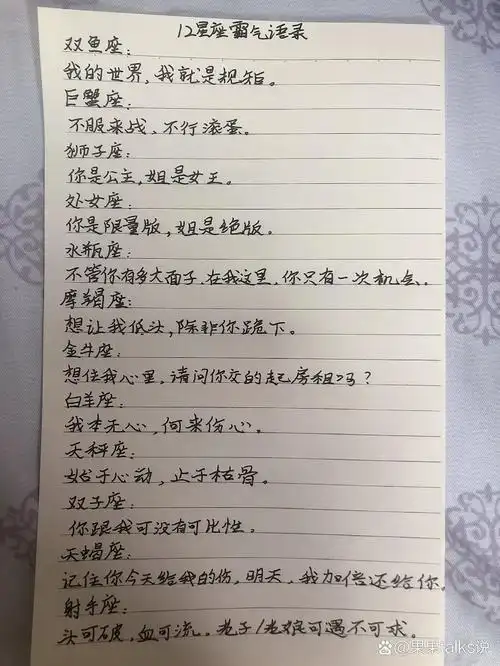 12星座霸气语录
双鱼座：
我的世界，我就是规矩。
巨蟹座：
不服来战，不行滚蛋。
狮子座：
你是公主，姐是女王。
处女座：
你是限量版，姐是绝版。
水瓶座：
不管你有多大面子，在我这里，你只有一次机会。
摩羯座：
想让我低头，除非你跪下。
金牛座：
想住我心里，请问你交的起房租吗？
白羊座：
我本无心，何来伤心。
天秤座：
始于心动，止于枯骨。
双子座：
你跟我可没有可比性。
天蝎座：
记住你今天给我的伤，明天，我加倍还给你。
射手座：
头可破，血可流。老子/老娘可遇不可求。
@果果talks说